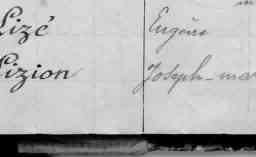 Lizé Eugène
Lizion Joseph-ma